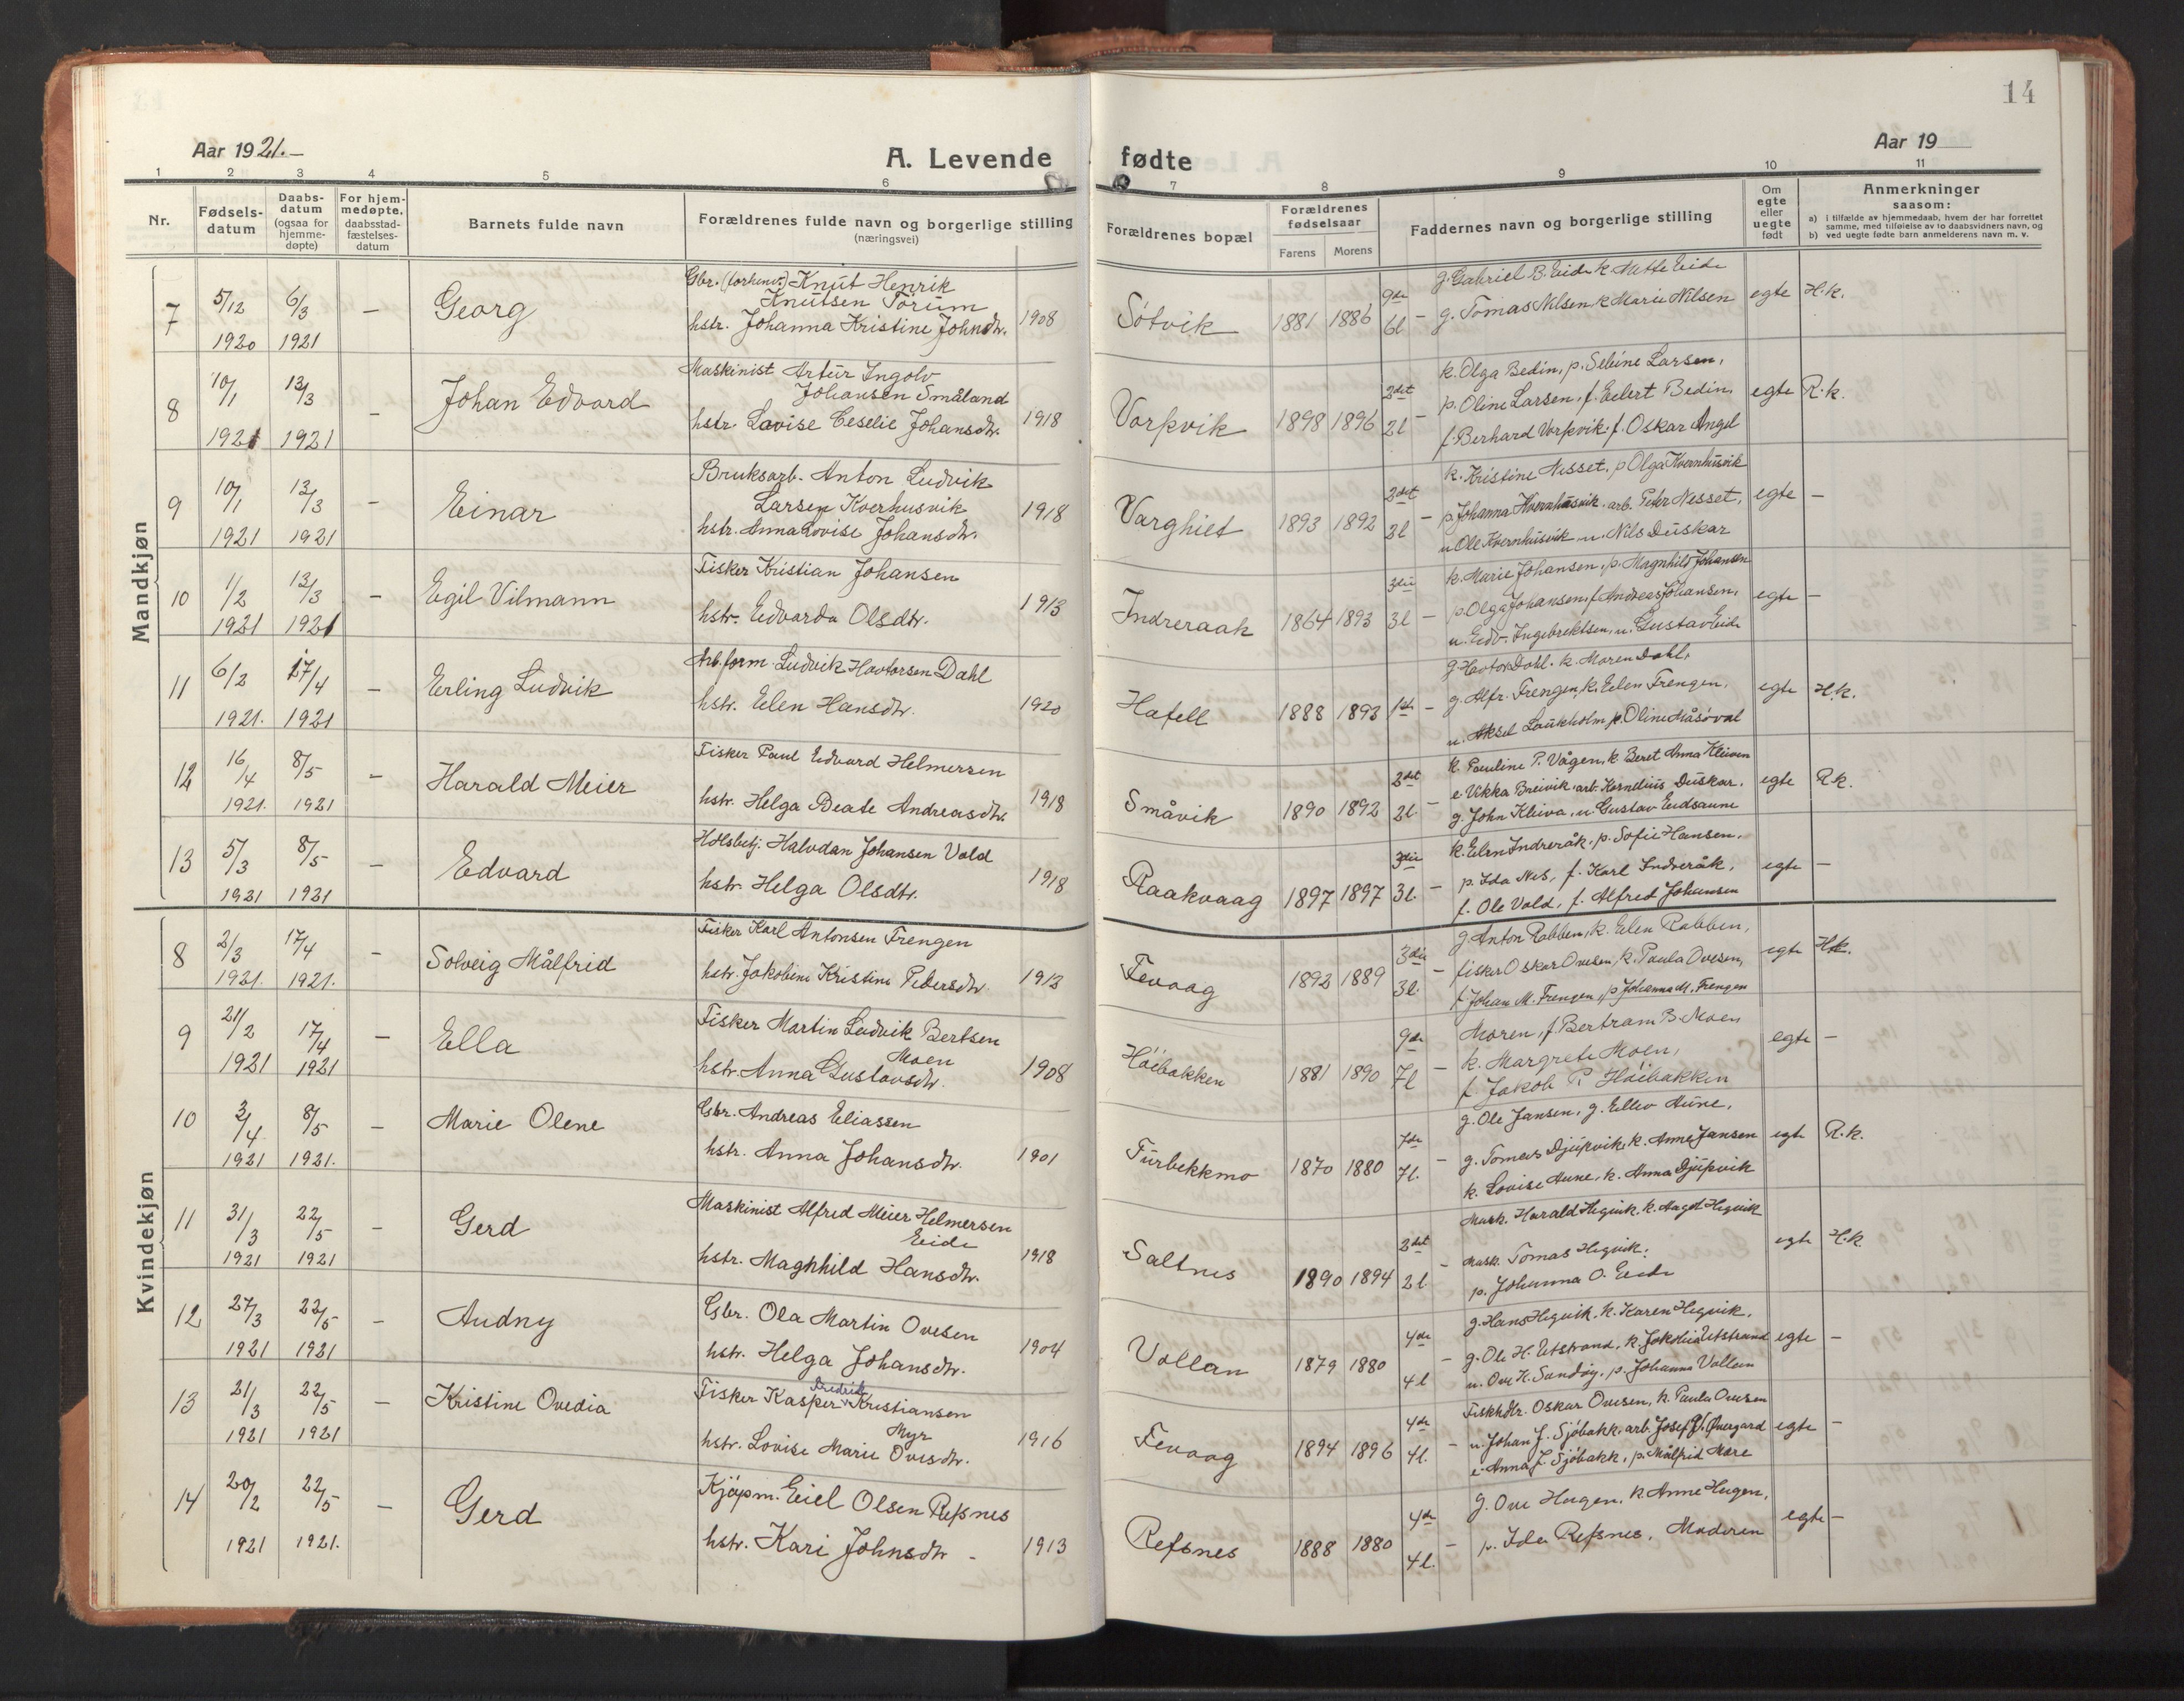 14
Aar 1921.-
A. Levende fødte
Aar 19
1 2 3 4 5 6 7 8 9 10 11
Nr.
Fødsels-
datum
Daabs-
datum
(ogsaa for
hjemme-
døpte)
For hjem-
medøpte,
daabsstad-
fæstelses-
datum
Barnets fulde navn
Forældrenes fulde navn og borgerlige stilling
(næringsvei)
Forældrenes bopæl
Forældrenes
fødselsaar
Farens Morens
Faddernes navn og borgerlige stilling
Om
egte
eller
uegte
født
Anmerkninger
saasom:
a) i tilfælde av hjemmedaab, hvem der har forrettet
samme, med tilføielse av to daabsvidners navn, og
b) ved uegte fødte barn anmelderens navn m. v.
Mandkjøn
7 5/12 1920 6/3 1921 - Georg
Gbr. (forhenv.) Knut Henrik
Knutsen Torum
hstr. Johanna Kristine Johnsdtr. 1908
Sötvik 1881 1886 9de 6l -
g. Gabriel B. Eide k. Mette Eide
g. Tomas Nilsen k Marie Nilsen
egte H.k.
8 10/1 1921 13/3 1921 - Johan Edvard
Maskinist Artur Ingolv
Johansen Småland
hstr. Lovise Ceselie Johansdtr. 1918
Vorpvik 1898 1896 2det 2l -
k. Olga Bedin, p. Seline Larsen,
p. Oline Larsen, f. Eilert Bedin,
f. Berhard Vorpvik, f. Oskar Angel
egte R.k.
9 10/1 1921 13/3 1921 - Einar
Bruksarb. Anton Ludvik
Larsen Kverhusvik
hstr. Anna Lovise Johansdtr. 1918
Varghiet 1893 1892 2det 2l -
k. Kristine Nesset, p Olga Kvernhusvik
p. Johanna Kvernhusvik, arb. Peter Nesset,
u Ole Kvernhusvik u. Nils Duskar
egte -
10 1/2 1921 13/3 1921 - Egil Vilmann
Fisker Kristian Johansen
hstr. Edvarda Olsdtr. 1913
Indreraak 1864 1893 3die 3l -
k. Marie Johansen, p. Magnhild Johansen
p Olga Johansen, f. Andreas Johansen,
u. Edv. Ingebrektsen, u. Gustav Eide
egte -
11 6/2 1921. 17/4 1921 - Erling Ludvik
Arb.form. Ludvik Havtorsen Dahl
hstr. Elen Hansdtr. 1920
Hafell 1888 1893 1ste -
g. Havtor Dahl. k. Maren Dahl,
g. Alfr. Frengen, k. Elen Frengen,
u. Aksel Laukholm p. Oline Måsöval
egte H.k.
12 16/4 1921. 8/5 1921 - Harald Meier
Fisker Paul Edvard Helmersen
hstr. Helga Beate Andreasdtr. 1918
Småvik 1890 1892 2det 2l. -
k. Pauline P. Vågen, k Beret Anna Kleiven
e. Vikka Breivik, arb. Kornelius Duskar,
g. John Kleiva, u. Gustav Eidsaune
egte R.k.
13 5/3 1921 8/5 1921 - Edvard
Halvdan Johansen Vold
hstr. Helga Olsdtr. 1918
Raakvaag 1897 1897 3die 3l. -
k. Elen Indreråk, p. Sofie Hansen,
p. Ida Nes, f. Karl Indreråk,
f. Ole Vold, f. Alfred Johansen
egte -
Kvindekjøn
8 2/3 1921. 17/4 1921. - Solveig Målfrid
Fisker Karl Antonsen Frengen
hstr. Jakobine Kristine Pedersdtr. 1913
Fevaag 1892 1889 3die 3l. -
g. Anton Rabben, k. Elen Rabben,
fisker Oskar Ovesen, k. Paula Ovesen,
f Johan M. Frengen, p Johanna M. Frengen
egte H.k.
9 21/2 1921 17/4 1921 - Ella
Fisker Martin Ludvik Bertsen
Moen
hstr. Anna Gustavsdtr. 1908
Höibakken 1881 1890 9de 7l -
Moren, f. Bertram B. Moen
k. Margrete Moen,
f. Jakob P. Höibakken
egte -
10 3/4 1921 8/5 1921. - Marie Olene
Gbr. Andreas Eliassen
hstr. Anna Johansdtr. 1901
Furbekkmo 1870 1880 7de 7l. -
g. Ole Jansen, g. Ellev Aune,
g. Tomas Djupvik, k. Anne Jansen
k. Lovise Aune, k. Anna Djupvik
egte R.k.
11 31/3 1921 22/5 1921 - Gerd
Maskinist Alfred Meier Helmersen
Eide
hstr. Maghhild Hansdtr. 1918
Saltnes 1890 1894 2det 2l. -
Mask. Harald Hegvik, k. Hegvik
Mask. Tomas Hegvik,
p. Johanna O. Eide
egte H.k
12 27/3 1921 22/5 1921 - Audny
Gbr. Ola Martin Ovesen
hstr. Helga Johansdtr. 1904
Vollan 1879 1880 4de 4l -
g. Hans Hegvik, k. Karen Hegvik,
g. Ole H. Utstrand, k Jakobia Utstrand
u. Ove K. Sundöy, p. Johanna Vollan
egte -
13 21/3 1921 22/5 1921 - Kristine Ovedia
Fisker Kasper Fredrik Kristiansen
Myr
hstr. Lovise Marie Ovesdtr. 1916
Fevaag 1894 1896 4de 4l. -
Fiskhdlr. Oskar Ovesen, k. Paula Ovesen
u. Johan J. Sjöbakk, arb. Josef Övergard
e. Anna J. Sjöbakk, p. Målfrid Mære
egte -
14 20/2 1921 22/5 1921. - Gerd
Kjöpm. Eiel Olsen Refsnes
hstr. Kari Johnsdtr - 1913
Refsnes 1888 1880 4de 4l. -
g. Ove Hugen, k. Anne Hugen,
p. Ida Refsnes, Moderen
egte -